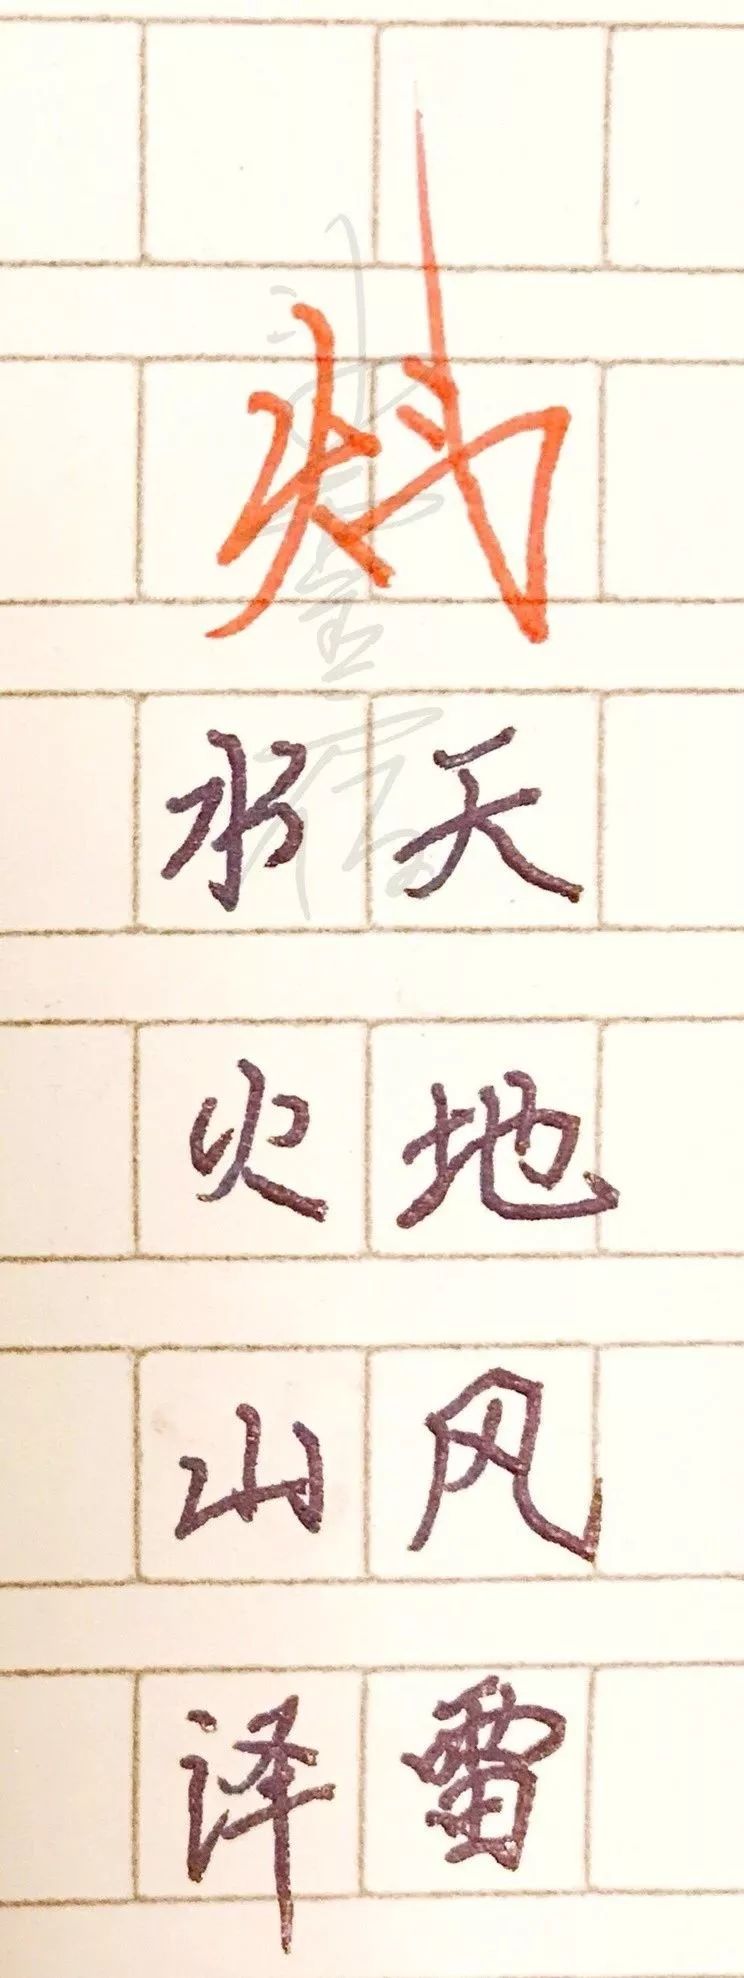 天地风雷
水火山泽